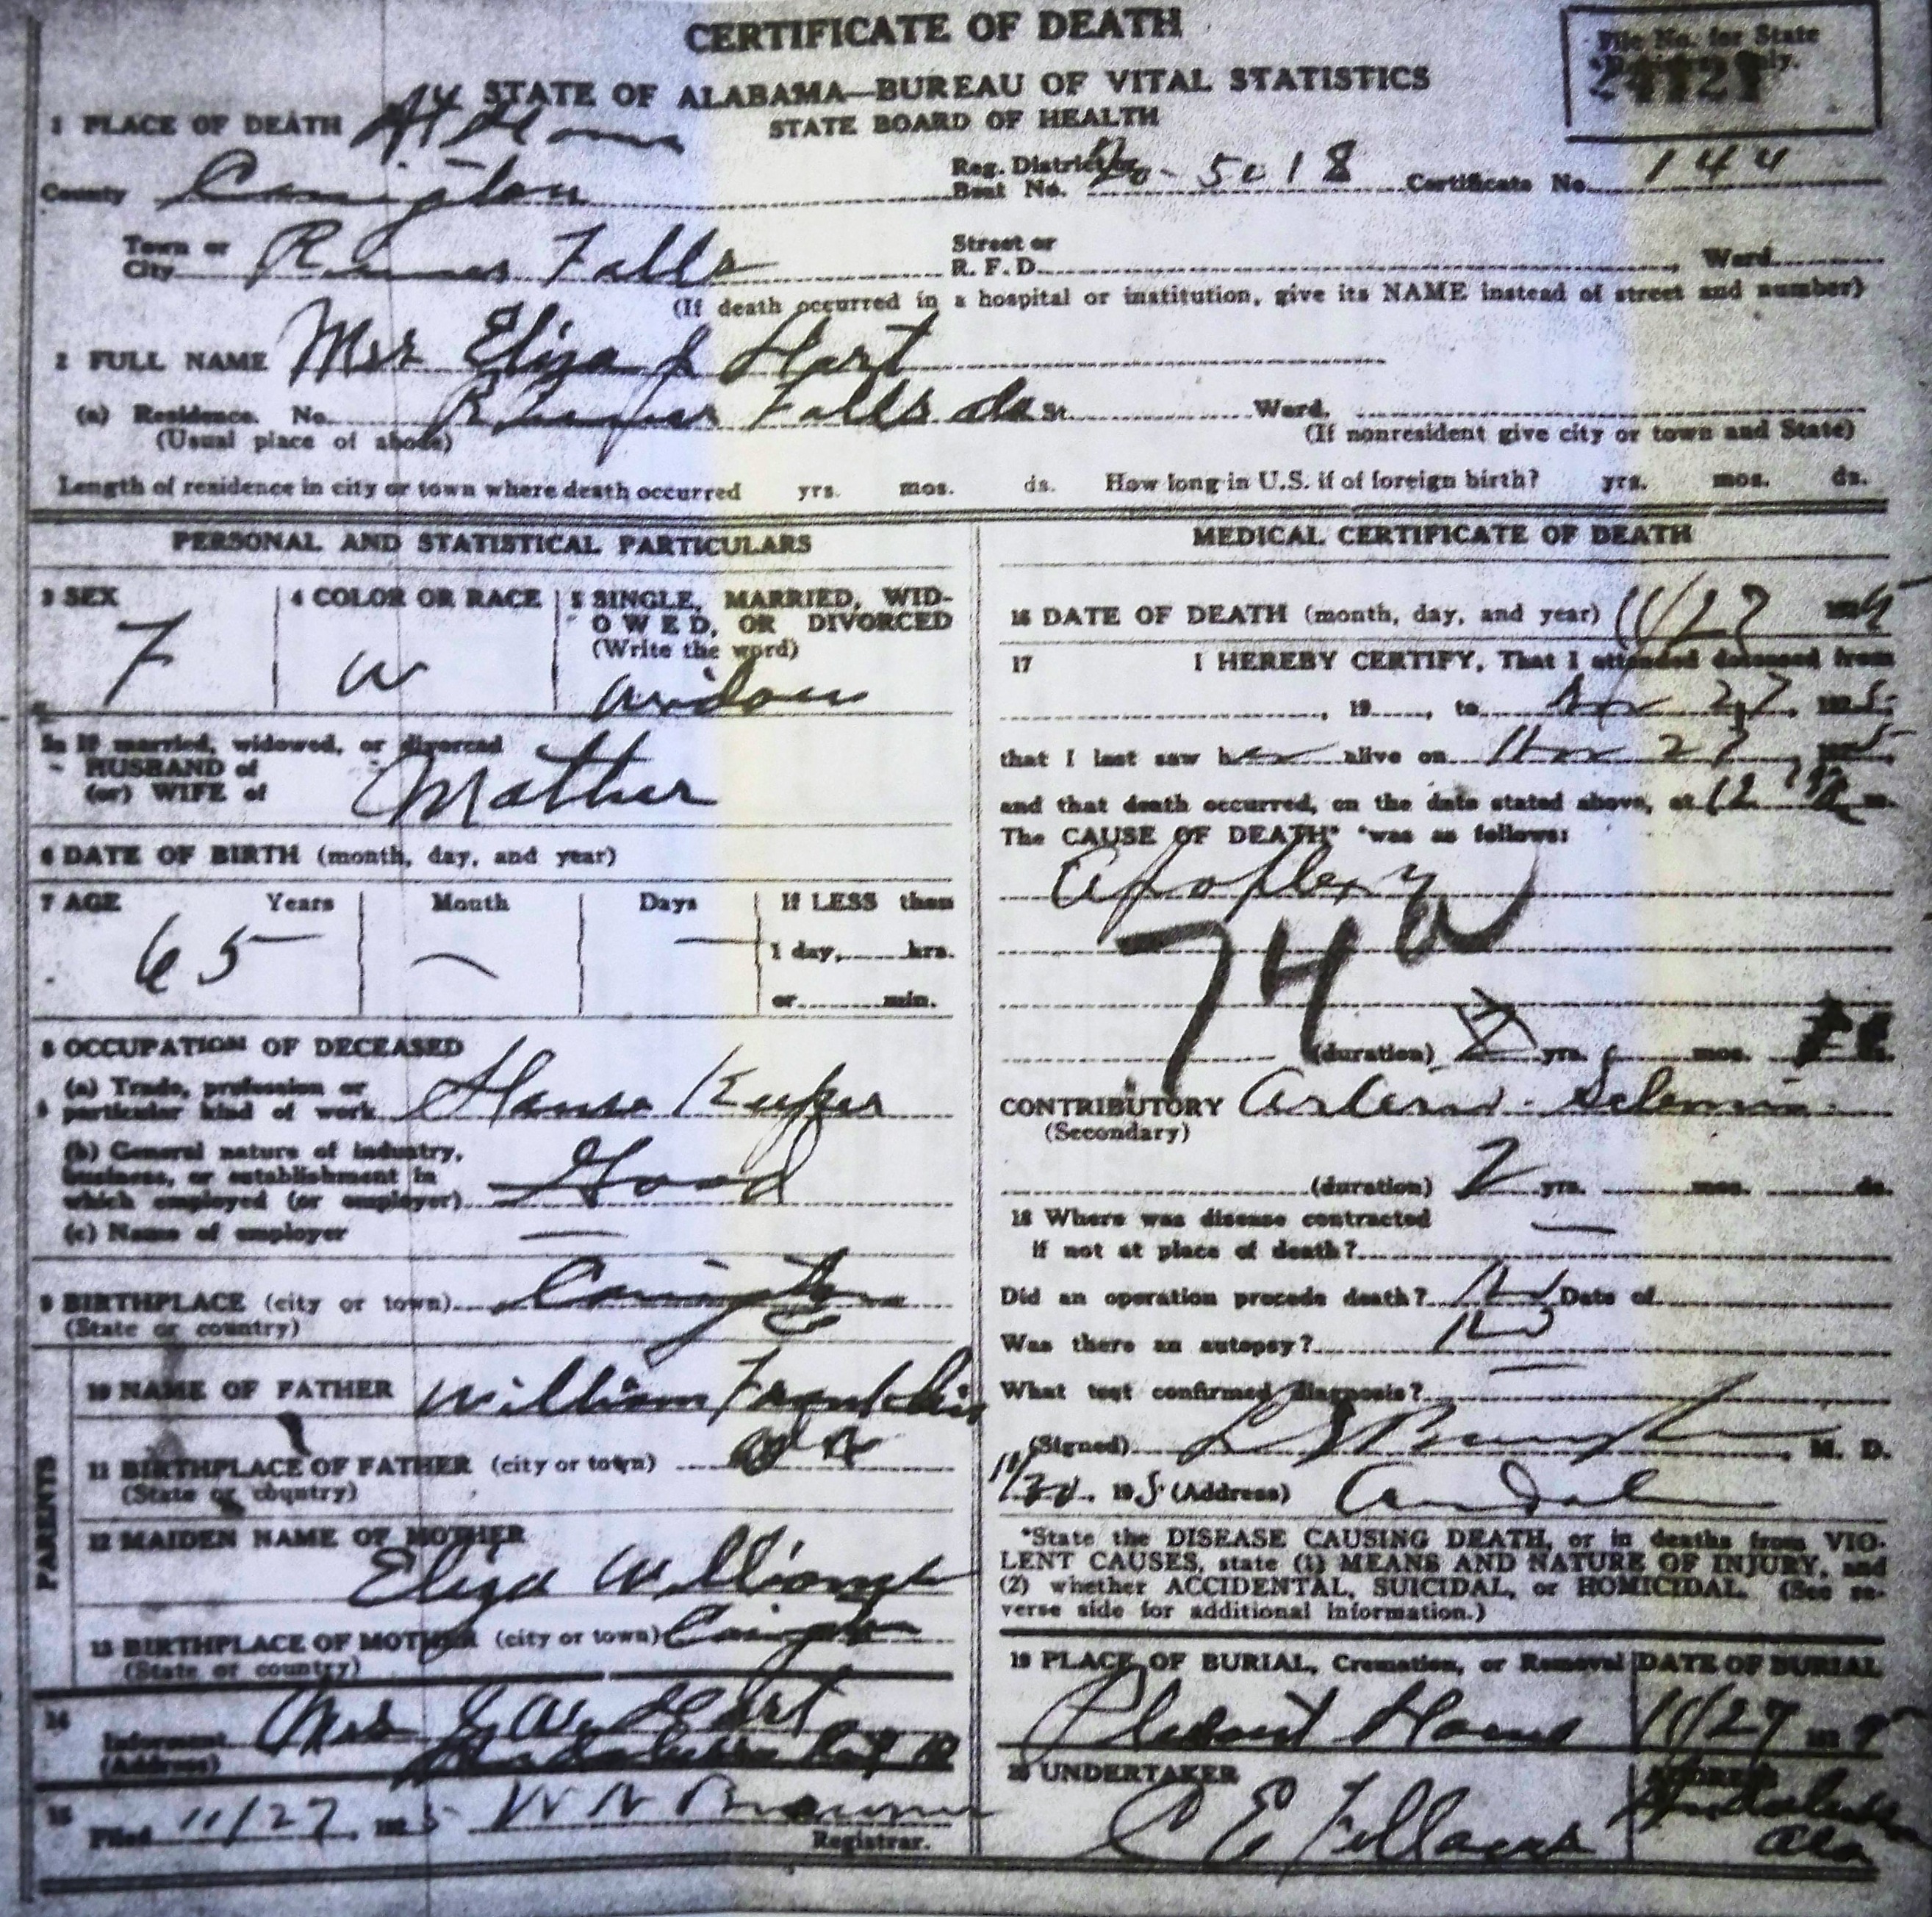 CERTIFICATE OF DEATH
File No. for State
STATE OF ALABAMA—BUREAU OF VITAL STATISTICS
STATE BOARD OF HEALTH
1 PLACE OF DEATH At Home
County Covington Reg. District or Beat No. 5018 Certificate No. 144
Town or City Falls Street or R. F. D. Ward
(If death occurred in a hospital or institution, give its NAME instead of street and number)
2 FULL NAME Mrs Eliza J Hart
(a) Residence. No. Falls Ala St. Ward.
(Usual place of abode) (If nonresident give city or town and State)
Length of residence in city or town where death occurred yrs. mos. ds. How long in U.S. if of foreign birth? yrs. mos. ds.
PERSONAL AND STATISTICAL PARTICULARS
3 SEX F
4 COLOR OR RACE W
5 SINGLE, MARRIED, WIDOWED, OR DIVORCED
(Write the word)
Widow
5a If married, widowed, or divorced
HUSBAND of
(or) WIFE of
Mother
6 DATE OF BIRTH (month, day, and year)
7 AGE Years Month Days If LESS than
65 — — 1 day, hrs.
or min.
8 OCCUPATION OF DECEASED
(a) Trade, profession or
particular kind of work House Keeper
(b) General nature of industry,
business, or establishment in
which employed (or employer) Good
(c) Name of employer —
9 BIRTHPLACE (city or town) Covington
(State or country) Co
PARENTS
10 NAME OF FATHER William Franklin
11 BIRTHPLACE OF FATHER (city or town)
(State or country)
12 MAIDEN NAME OF MOTHER
Eliza Williams
13 BIRTHPLACE OF MOTHER (city or town) Covington
(State or country)
14
Informent Mrs Hart
(Address) Andalusia
15
Filed 11/27, 1925
Registrar.
MEDICAL CERTIFICATE OF DEATH
16 DATE OF DEATH (month, day, and year) 11/27 1925
17 I HEREBY CERTIFY, That I attended deceased from
, 19 , to Nov 27, 1925
that I last saw her alive on Nov 27, 1925
and that death occurred, on the date stated above, at 12 m.
The CAUSE OF DEATH* was as follows:
Apoplexy
74 a
(duration) yrs. mos. ds.
CONTRIBUTORY Arterio-Sclerosis
(Secondary)
(duration) 2 yrs. mos. ds.
18 Where was disease contracted
if not at place of death? —
Did an operation precede death? No Date of
Was there an autopsy? No
What test confirmed diagnosis?
(Signed) , M. D.
11/30, 1925 (Address) Andalusia
*State the DISEASE CAUSING DEATH, or in deaths from VIO-
LENT CAUSES, state (1) MEANS AND NATURE OF INJURY, and
(2) whether ACCIDENTAL, SUICIDAL, or HOMICIDAL. (See re-
verse side for additional information.)
19 PLACE OF BURIAL, Cremation, or Removal DATE OF BURIAL
Pleasant Home 11/27 1925
20 UNDERTAKER ADDRESS
C E Andalusia
Ala